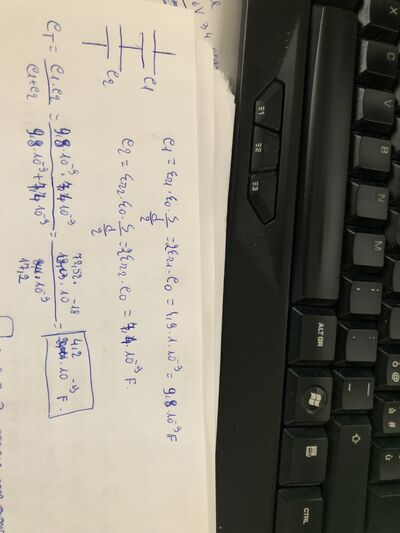 C1
C2
C1 = εr1 · ε0 · S / d/2 = 2εr1 · C0 = 4,9 · 1 · 10^-9 = 9,8 10^-9 F
C2 = εr2 · ε0 · S / d/2 = 2εr2 · C0 = 7,4 · 10^-9 F.
CT = C1·C2 / C1+C2 = 9,8 10^-9 · 7,4 10^-9 / 9,8 10^-9 + 7,4 10^-9 = 72,52 · 10^-18 / 17,2 10^-9 = 4,2 · 10^-9 F.
E1
E2
E3
X
C
V
B
N
M
ALT GR
CTRL